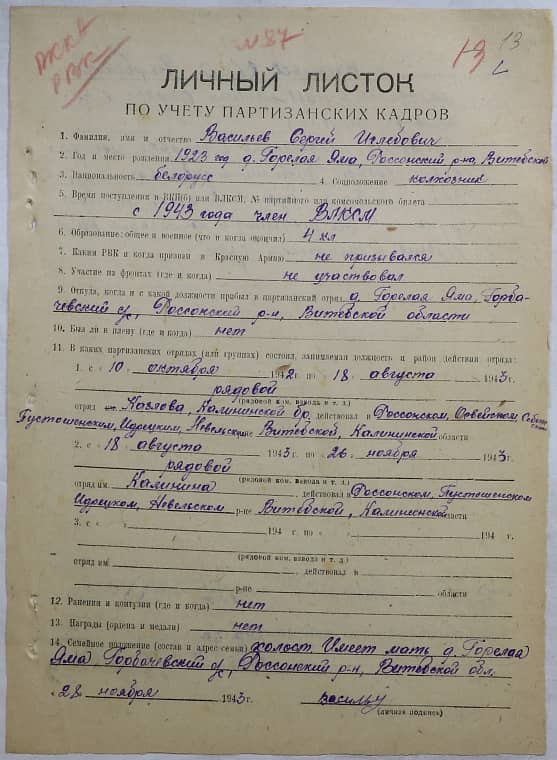 РККА
РВК
№ 87
13
13
ЛИЧНЫЙ ЛИСТОК
ПО УЧЕТУ ПАРТИЗАНСКИХ КАДРОВ
1. Фамилия, имя и отчество Васильев Сергей Иглебович
2. Год и место рождения 1923 год д. Горелая Яма, Россонский р-на, Витебской
3. Национальность белорусс 4. Соцположение колхозник
5. Время поступления в ВКП(б) или ВЛКСМ, № партийного или комсомольского билета
с 1943 года член ВЛКСМ
6. Образование: общее и военное (что и когда окончил) 4 кл
7. Каким РВК и когда призван в Красную Армию не призывался
8. Участие на фронтах (где и когда) не участвовал
9. Откуда, когда и с какой должности прибыл в партизанский отряд д. Горелая Яма, Горба-
чевский с/с, Россонский р-н, Витебской области
10. Был ли в плену (где и когда) нет
11. В каких партизанских отрядах (или группах) состоял, занимаемая должность и район действия отряда:
1. с 10 октября 1942 г по 18 августа 1943 г.
рядовой
(рядовой ком. взвода и т. д.)
отряд им. Козлова, Калининской бр, действовал в Россонском, Освейском, Себежском
Пустошенском, Идрецком, Невельском р-не Витебской, Калининской области
2. с 18 августа 1943 г по 26 ноября 1943 г.
рядовой
(рядовой ком. взвода и т. д.)
отряд им. Калинина действовал в Россонском, Пустошенском
Идрецком, Невельском р-не Витебской, Калининской области
3. с 194 г по 194 г.
(рядовой ком. взвода и т. д.)
отряд им. действовал в
р-не области
12. Ранения и контузии (где и когда) нет
13. Награды (ордена и медали) нет
14. Семейное положение (состав и адрес семьи) холост. Имеет мать д. Горелая
Яма, Горбачевский с/с, Россонский р-н, Витебской обл.
28 ноября 1943 г. Васильу
(личная подпись)